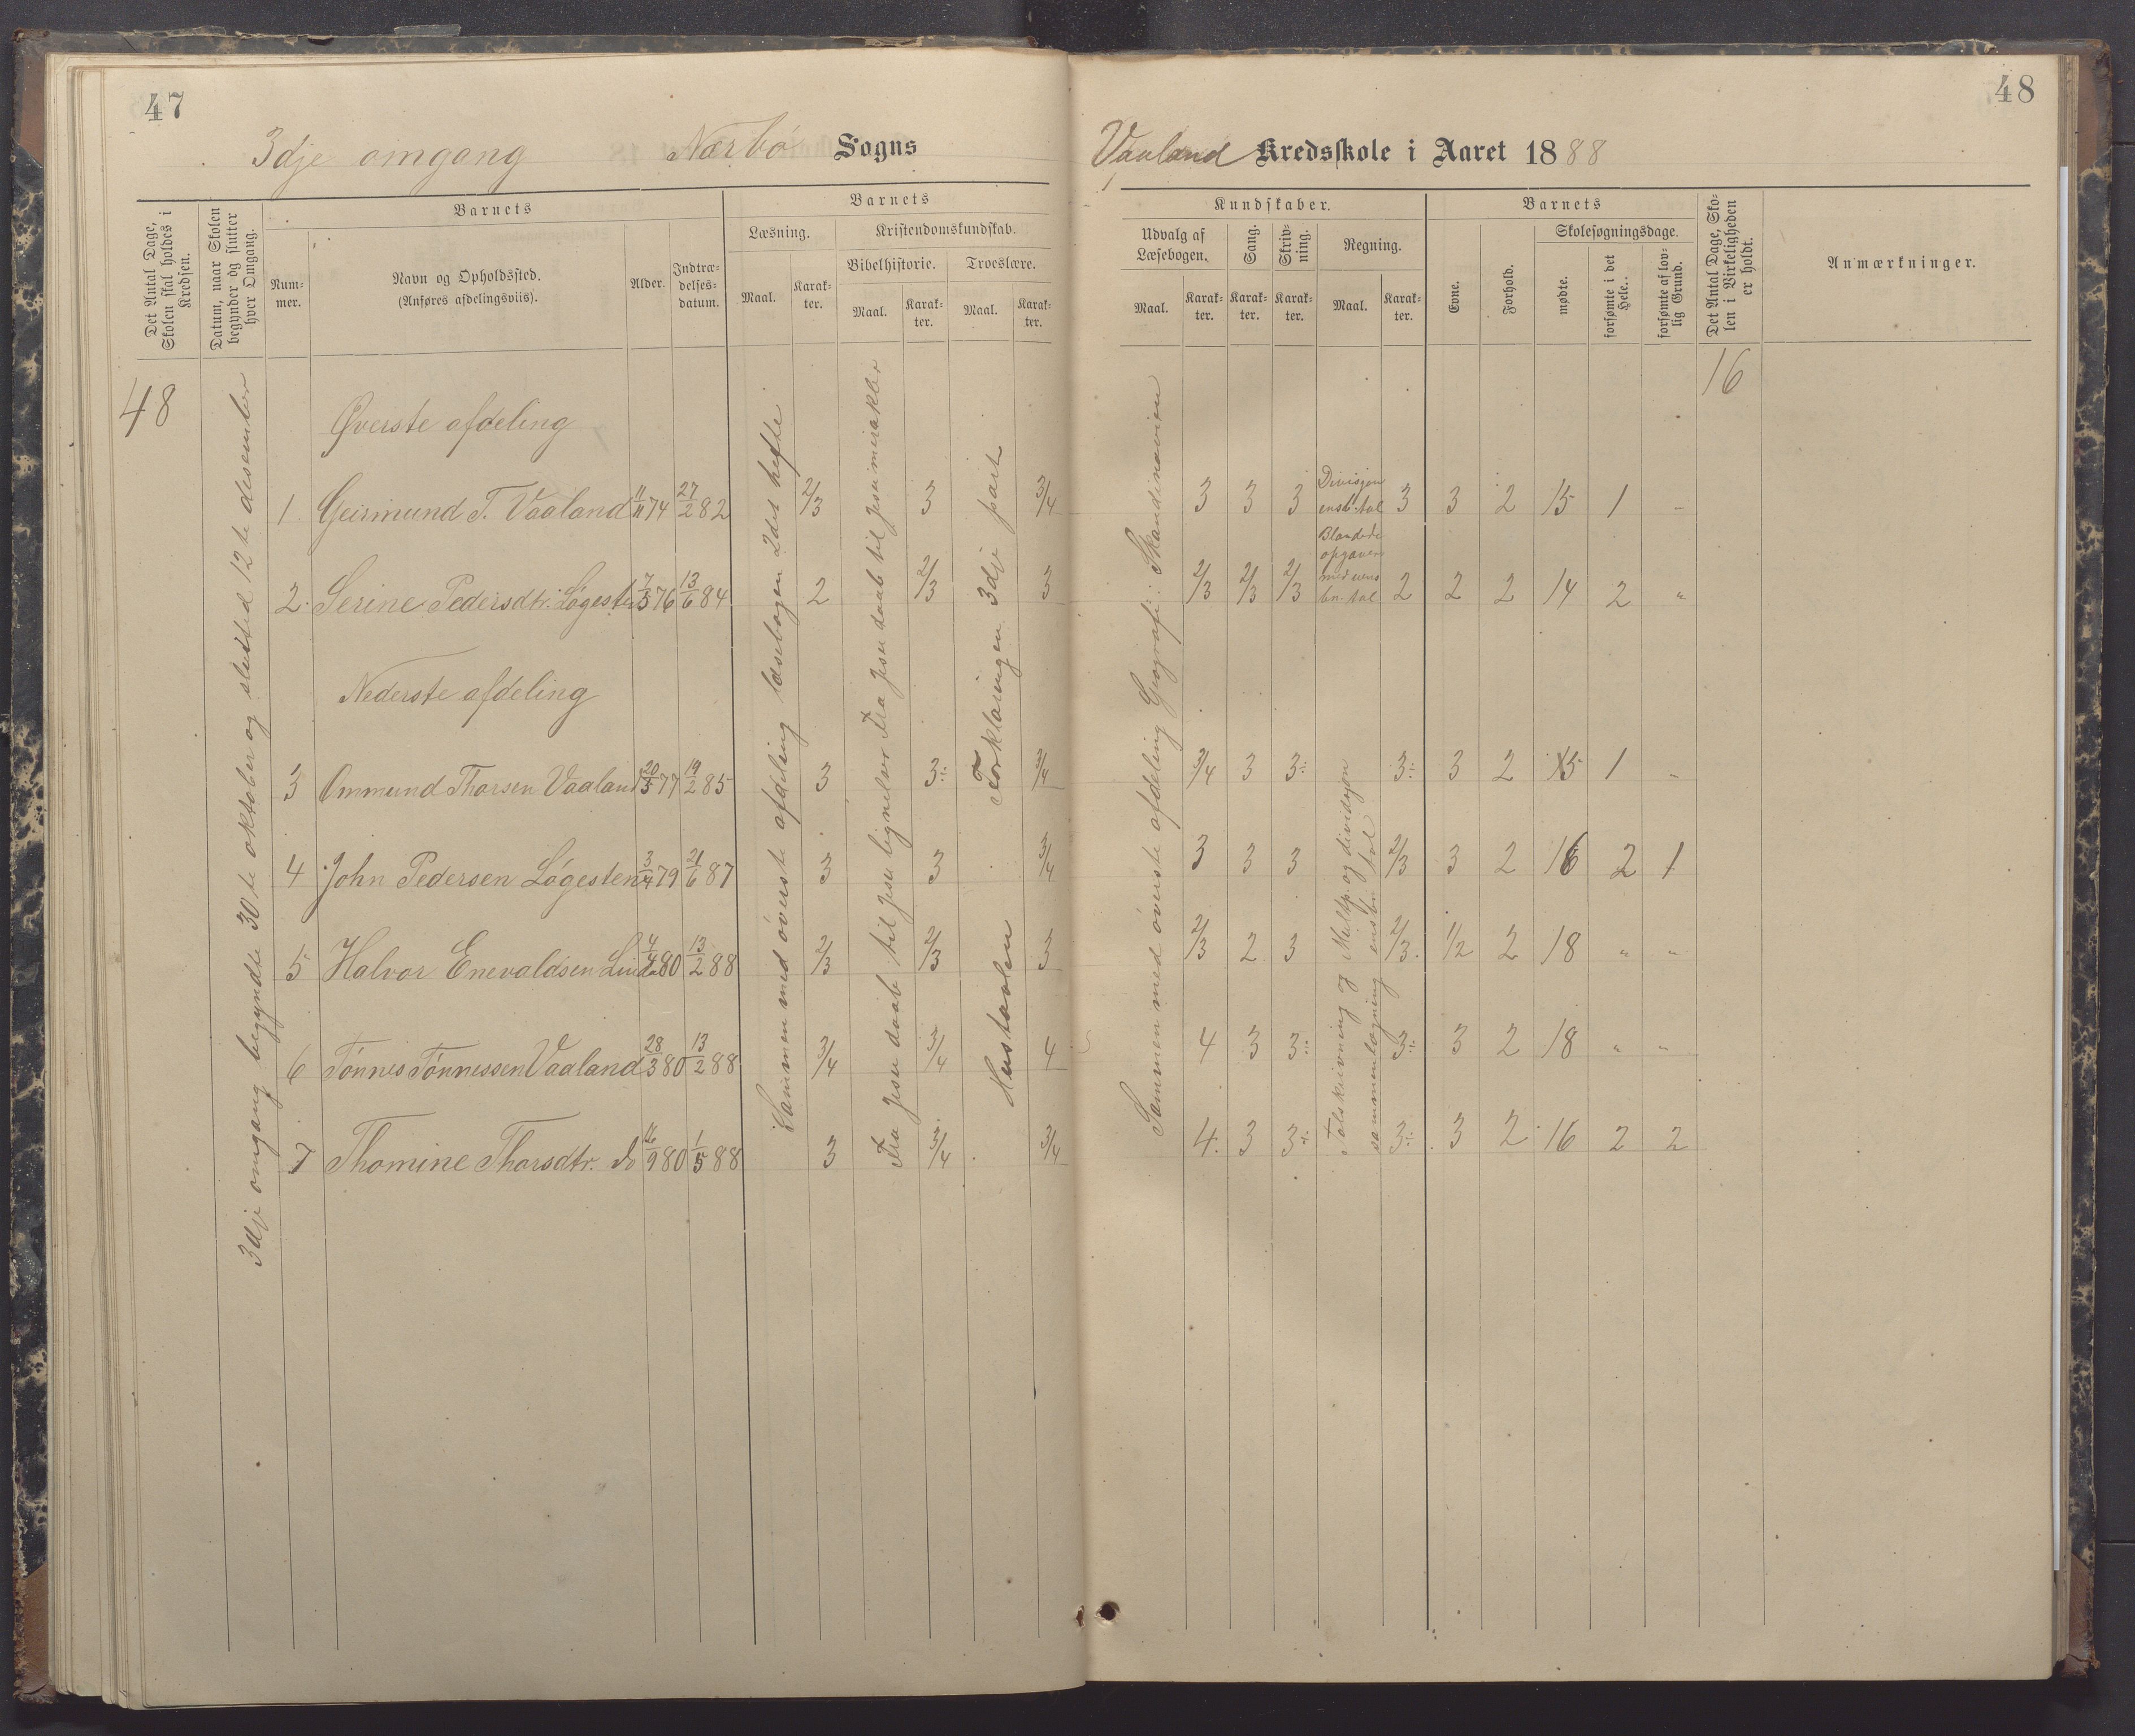 47
3dje omgang Nærbö Sogns
Det Antal Dage, Skolen skal holdes i Kredsen.
Datum, naar Skolen begynder og slutter hver Omgang.
Barnets
Num-
mer.
Navn og Opholdssted.
(Anføres afdelingsviis).
Alder.
Indtræ-
delses-
datum.
Barnets
Læsning.
Maal.
Karak-
ter.
Kristendomskundskab.
Bibelhistorie.
Maal.
Karak-
ter.
Troeslære.
Maal.
Karak-
ter.
48
3dje omgang begyndte 30te oktober og slutted 12te desember
Øverste afdeling
1 Geirmund T. Vaaland 11/11 74 27/2 82 2/3 3 3/4
2. Serine Pedersdtr. Lógesten 7/5 76 13/6 84 2 2/3 3
Nederste afdeling
3 Ommund Thorsen Vaaland 20/5 77 19/2 85 3 3 3/4
4 John Pedersen Lógesten 3/4 79 21/6 87 3 3 3/4
5 Halvor Enevaldsen Linda 4/4 80 13/2 88 2/3 2/3 3
6 Tónnes Tónnessen Vaaland 28/3 80 13/2 88 3/4 3/4 4
7 Thomine Thorsdtr. do 16/9 80 1/5 88 3 3/4 3/4
Sammen med överste afdeling læsebogen 2det hefte
Fra Jesu daab til Jesu lignelser Fra Jesu daab til Jesu mirakler
Hustavlen Forklaringen 3dje part
48
Vaaland Kredsskole i Aaret 1888
Kundskaber.
Udvalg af
Læsebogen.
Maal.
Karak-
ter.
Sang.
Karak-
ter.
Skriv-
ning.
Karak-
ter.
Regning.
Maal.
Karak-
ter.
Barnets
Evne.
Forhold.
Skolesøgningsdage.
mødte.
forsømte i det Hele.
forsømte af lov-
lig Grund.
Det Antal Dage, Sko-
len i Virkeligheden
er holdt.
Anmærkninger.
16
3 3 3 Divisjon ensb. tal 3 3 2 15 1 -
2/3 2/3 2/3 Blandede opgaver med uens bn. tal 2 2 2 14 2 "
3/4 3 3 3 3 2 15 1 "
3 3 3 2/3 3 2 16 2 1
2/3 2 3 2/3 1/2 2 18 " "
4 3 3 3 3 2 18 " "
4 3 3 3 3 2 16 2 2
Sammen med óverste afdeling Geografi: Skandinavien
Talskrivning og Multp. og dividsjon
sammenlægning ensbn. tal